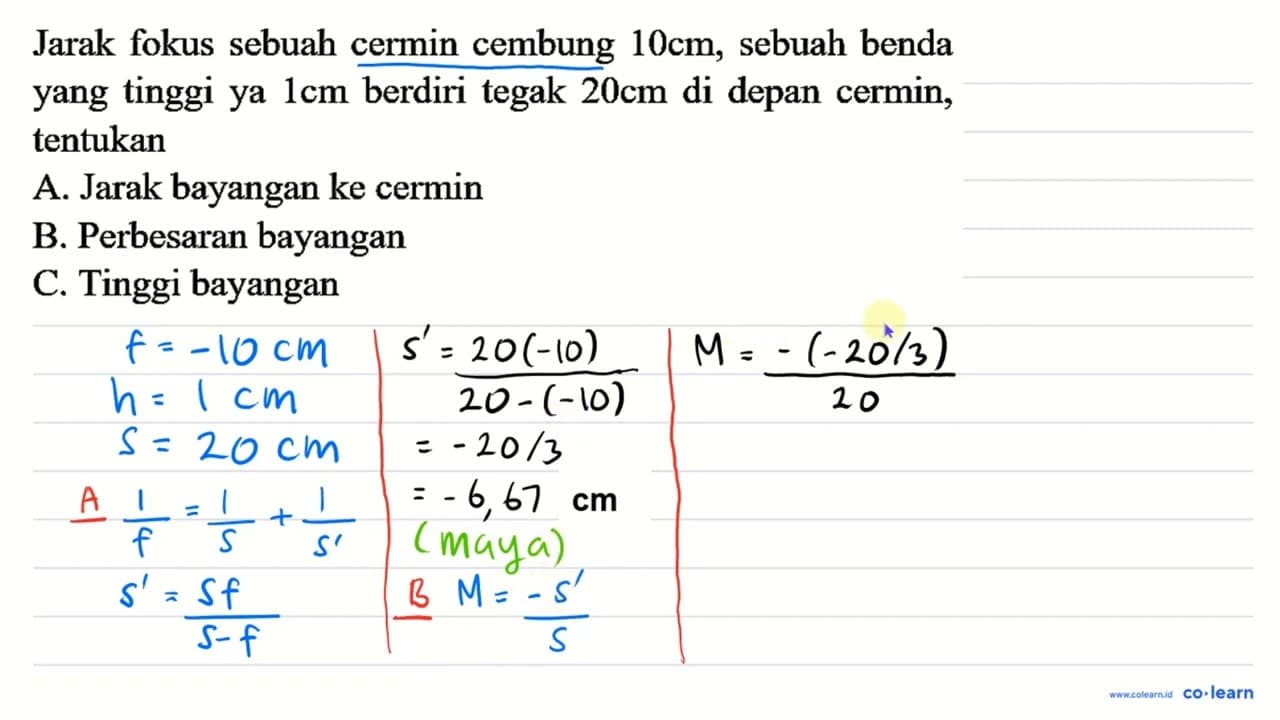 Jarak fokus sebuah cermin cembung 10cm, sebuah benda
yang tinggi ya 1cm berdiri tegak 20cm di depan cermin,
tentukan
A. Jarak bayangan ke cermin
B. Perbesaran bayangan
C. Tinggi bayangan
f = -10 cm
h = 1 cm
s = 20 cm
A 1/f = 1/s + 1/s'
s' = sf/s-f
s' = 20(-10)/20-(-10)
= -20/3
= -6,67 cm
(maya)
B M = -s'/s
M = -(-20/3)/20
www.colearn.id co·learn